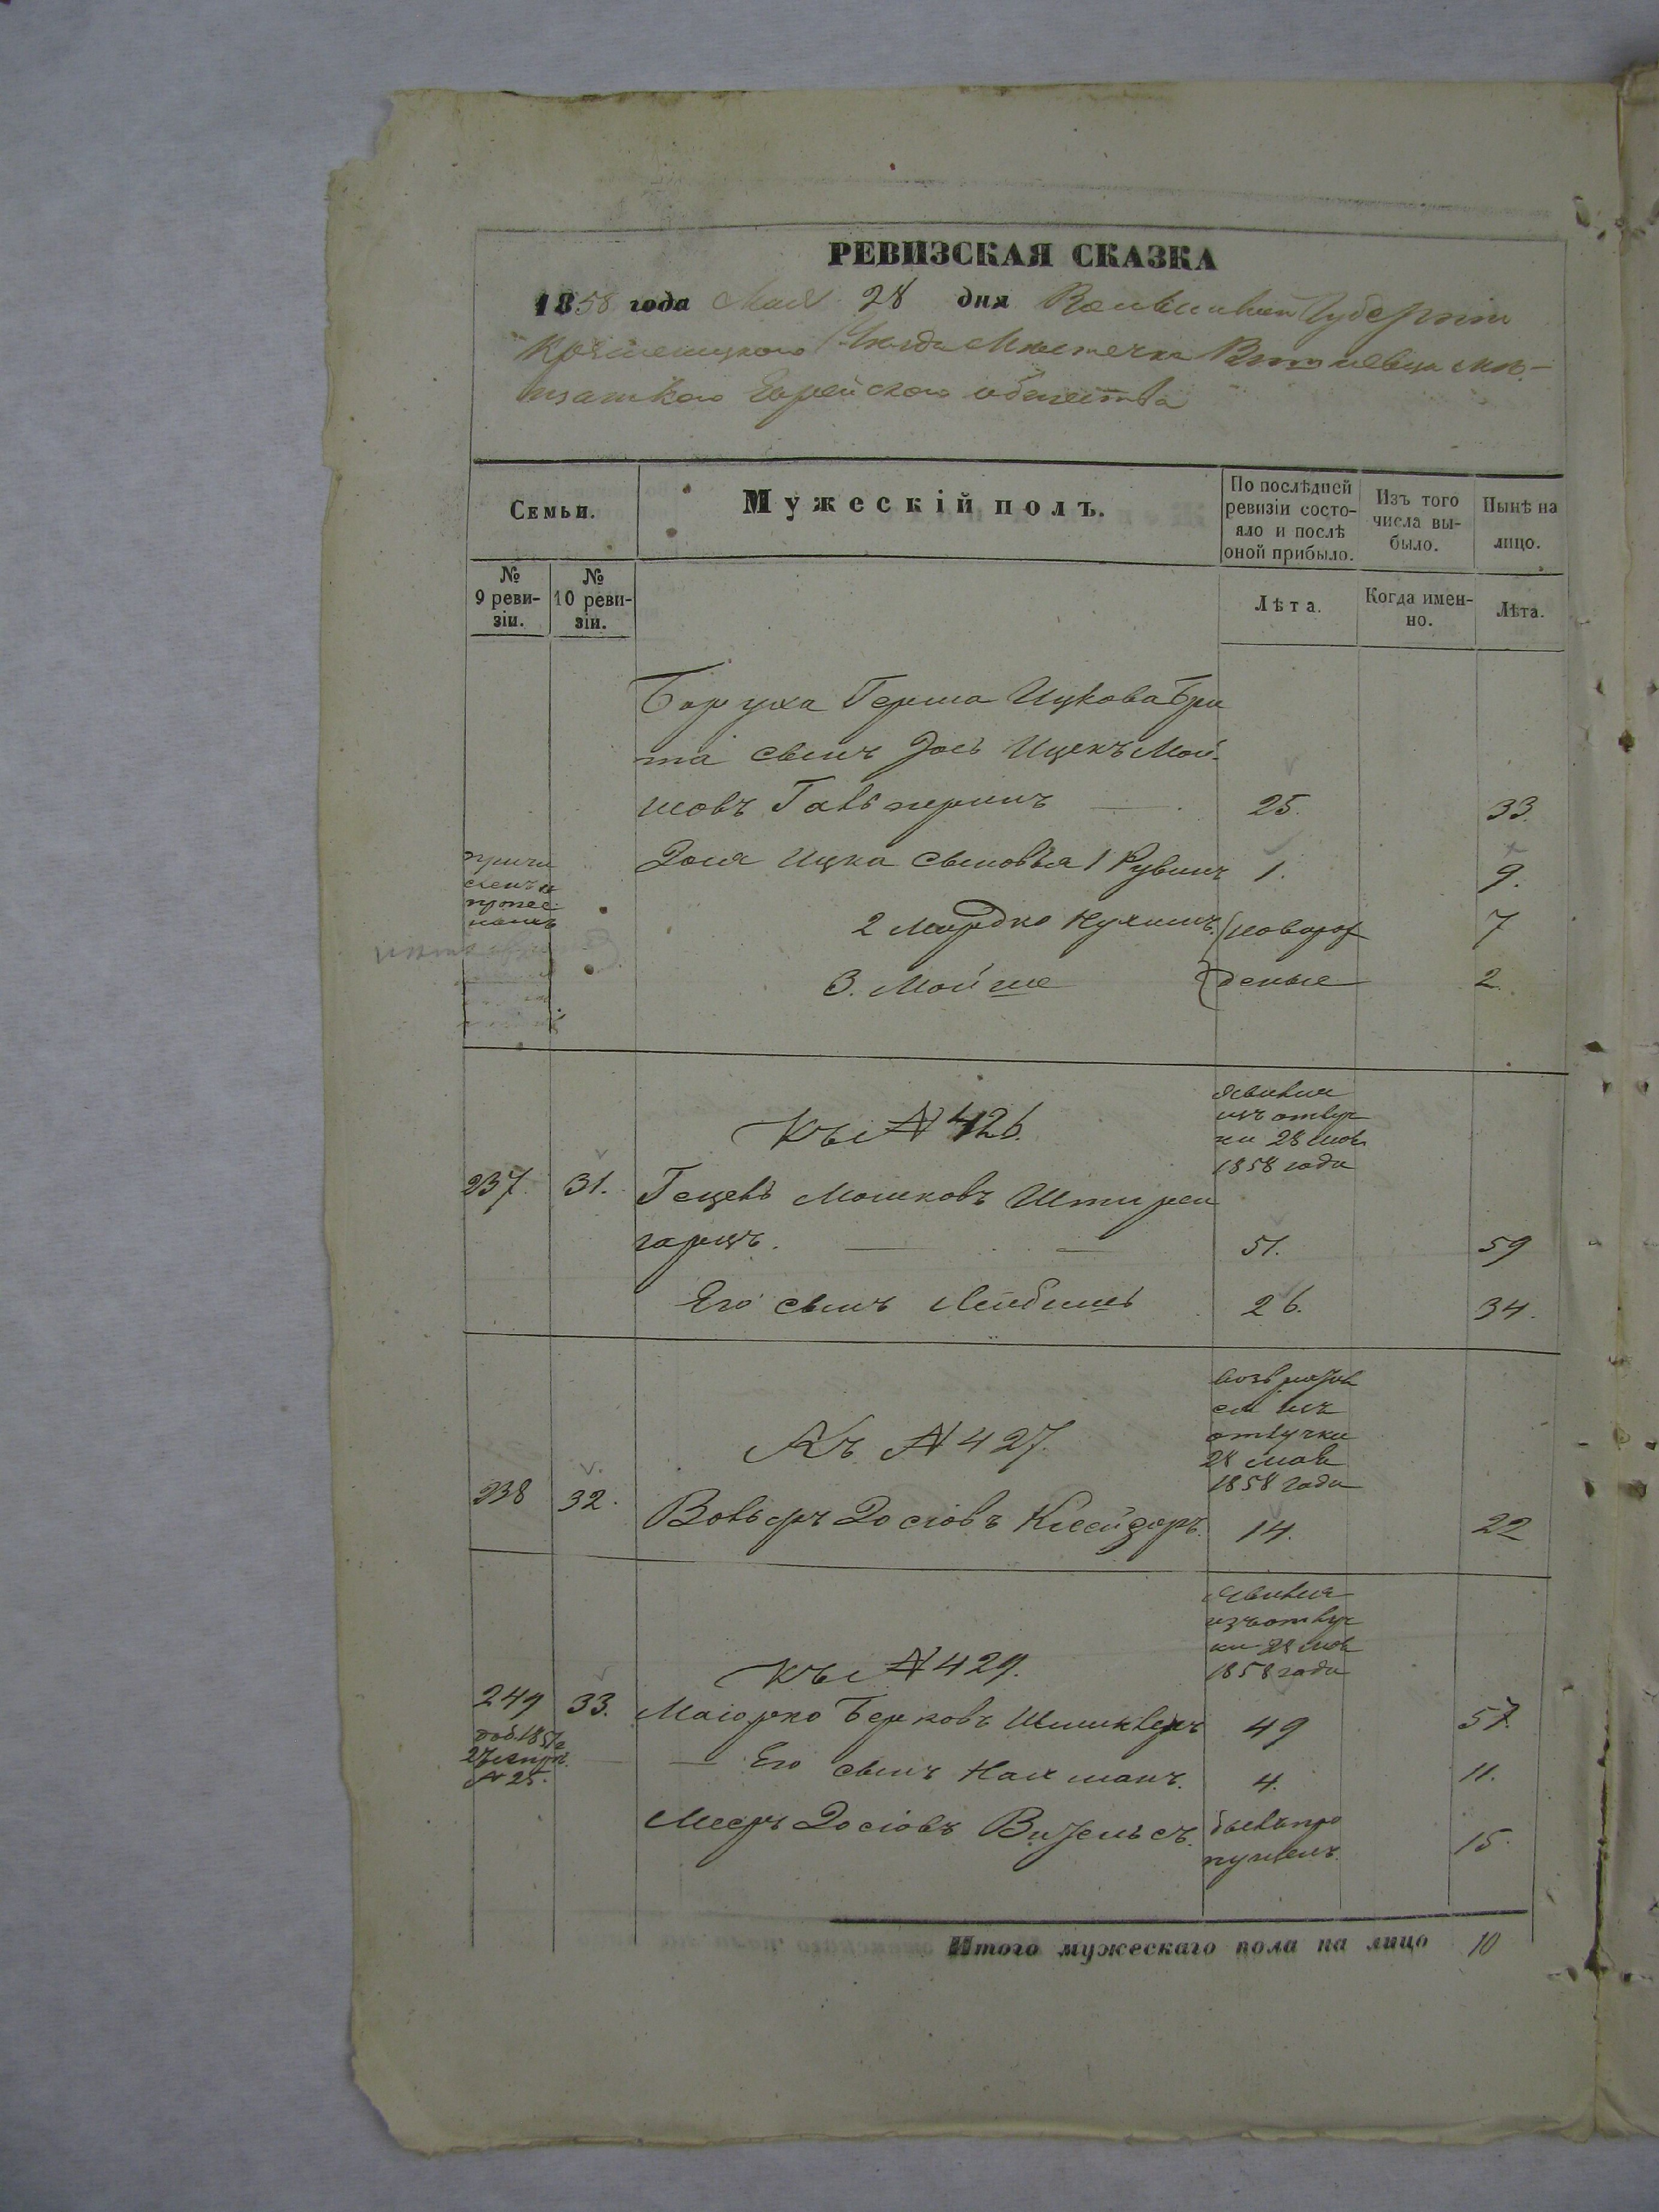 РЕВИЗСКАЯ СКАЗКА
1858 года Мая 28 дня Волынской Губерніи
Кременецкого Уезда Местечка мѣ-
щанкого Еврейского общества
Семьи.
Мужескій полъ.
По послѣдней ревизіи состо-яло и послѣ оной прибыло.
Изъ того числа вы-было.
Нынѣ на лицо.
№ 9 реви-зіи.
№ 10 реви-зіи.
Лѣта.
Когда имен-но.
Лѣта.
Боруха Герша Ицкова Бри
та сынъ Іось Ицекъ Мой-
шовъ Гальперинъ 25. 33.
Іося Ицка сыновья 1 Рувинъ 1. 9.
причи
сленъ
2 Мордко Нухимъ новорож 7
3. Мойше деные 2.
Къ № 426.
явился
изъ отлуч
ки 28 мая
1858 года
237. 31. Гецель Мошковъ Штирен
гарцъ. 51. 59
Его сынъ Лейбишъ 26. 34.
Къ № 427.
возвратил
ся изъ
отлучки
28 мая
1858 года
238 32. Вольфъ Іосіовъ Клейнеръ. 14. 22
Къ № 429.
явился
изъ отлуч
ки 28 мая
1858 года
249 33. Маіорко Берковъ 49 57.
доб. 1851 г
№ 25.
Его сынъ Нахманъ. 4. 11.
Мееръ Іосіовъ былъ про
пущенъ. 15.
Итого мужескаго пола на лицо 10